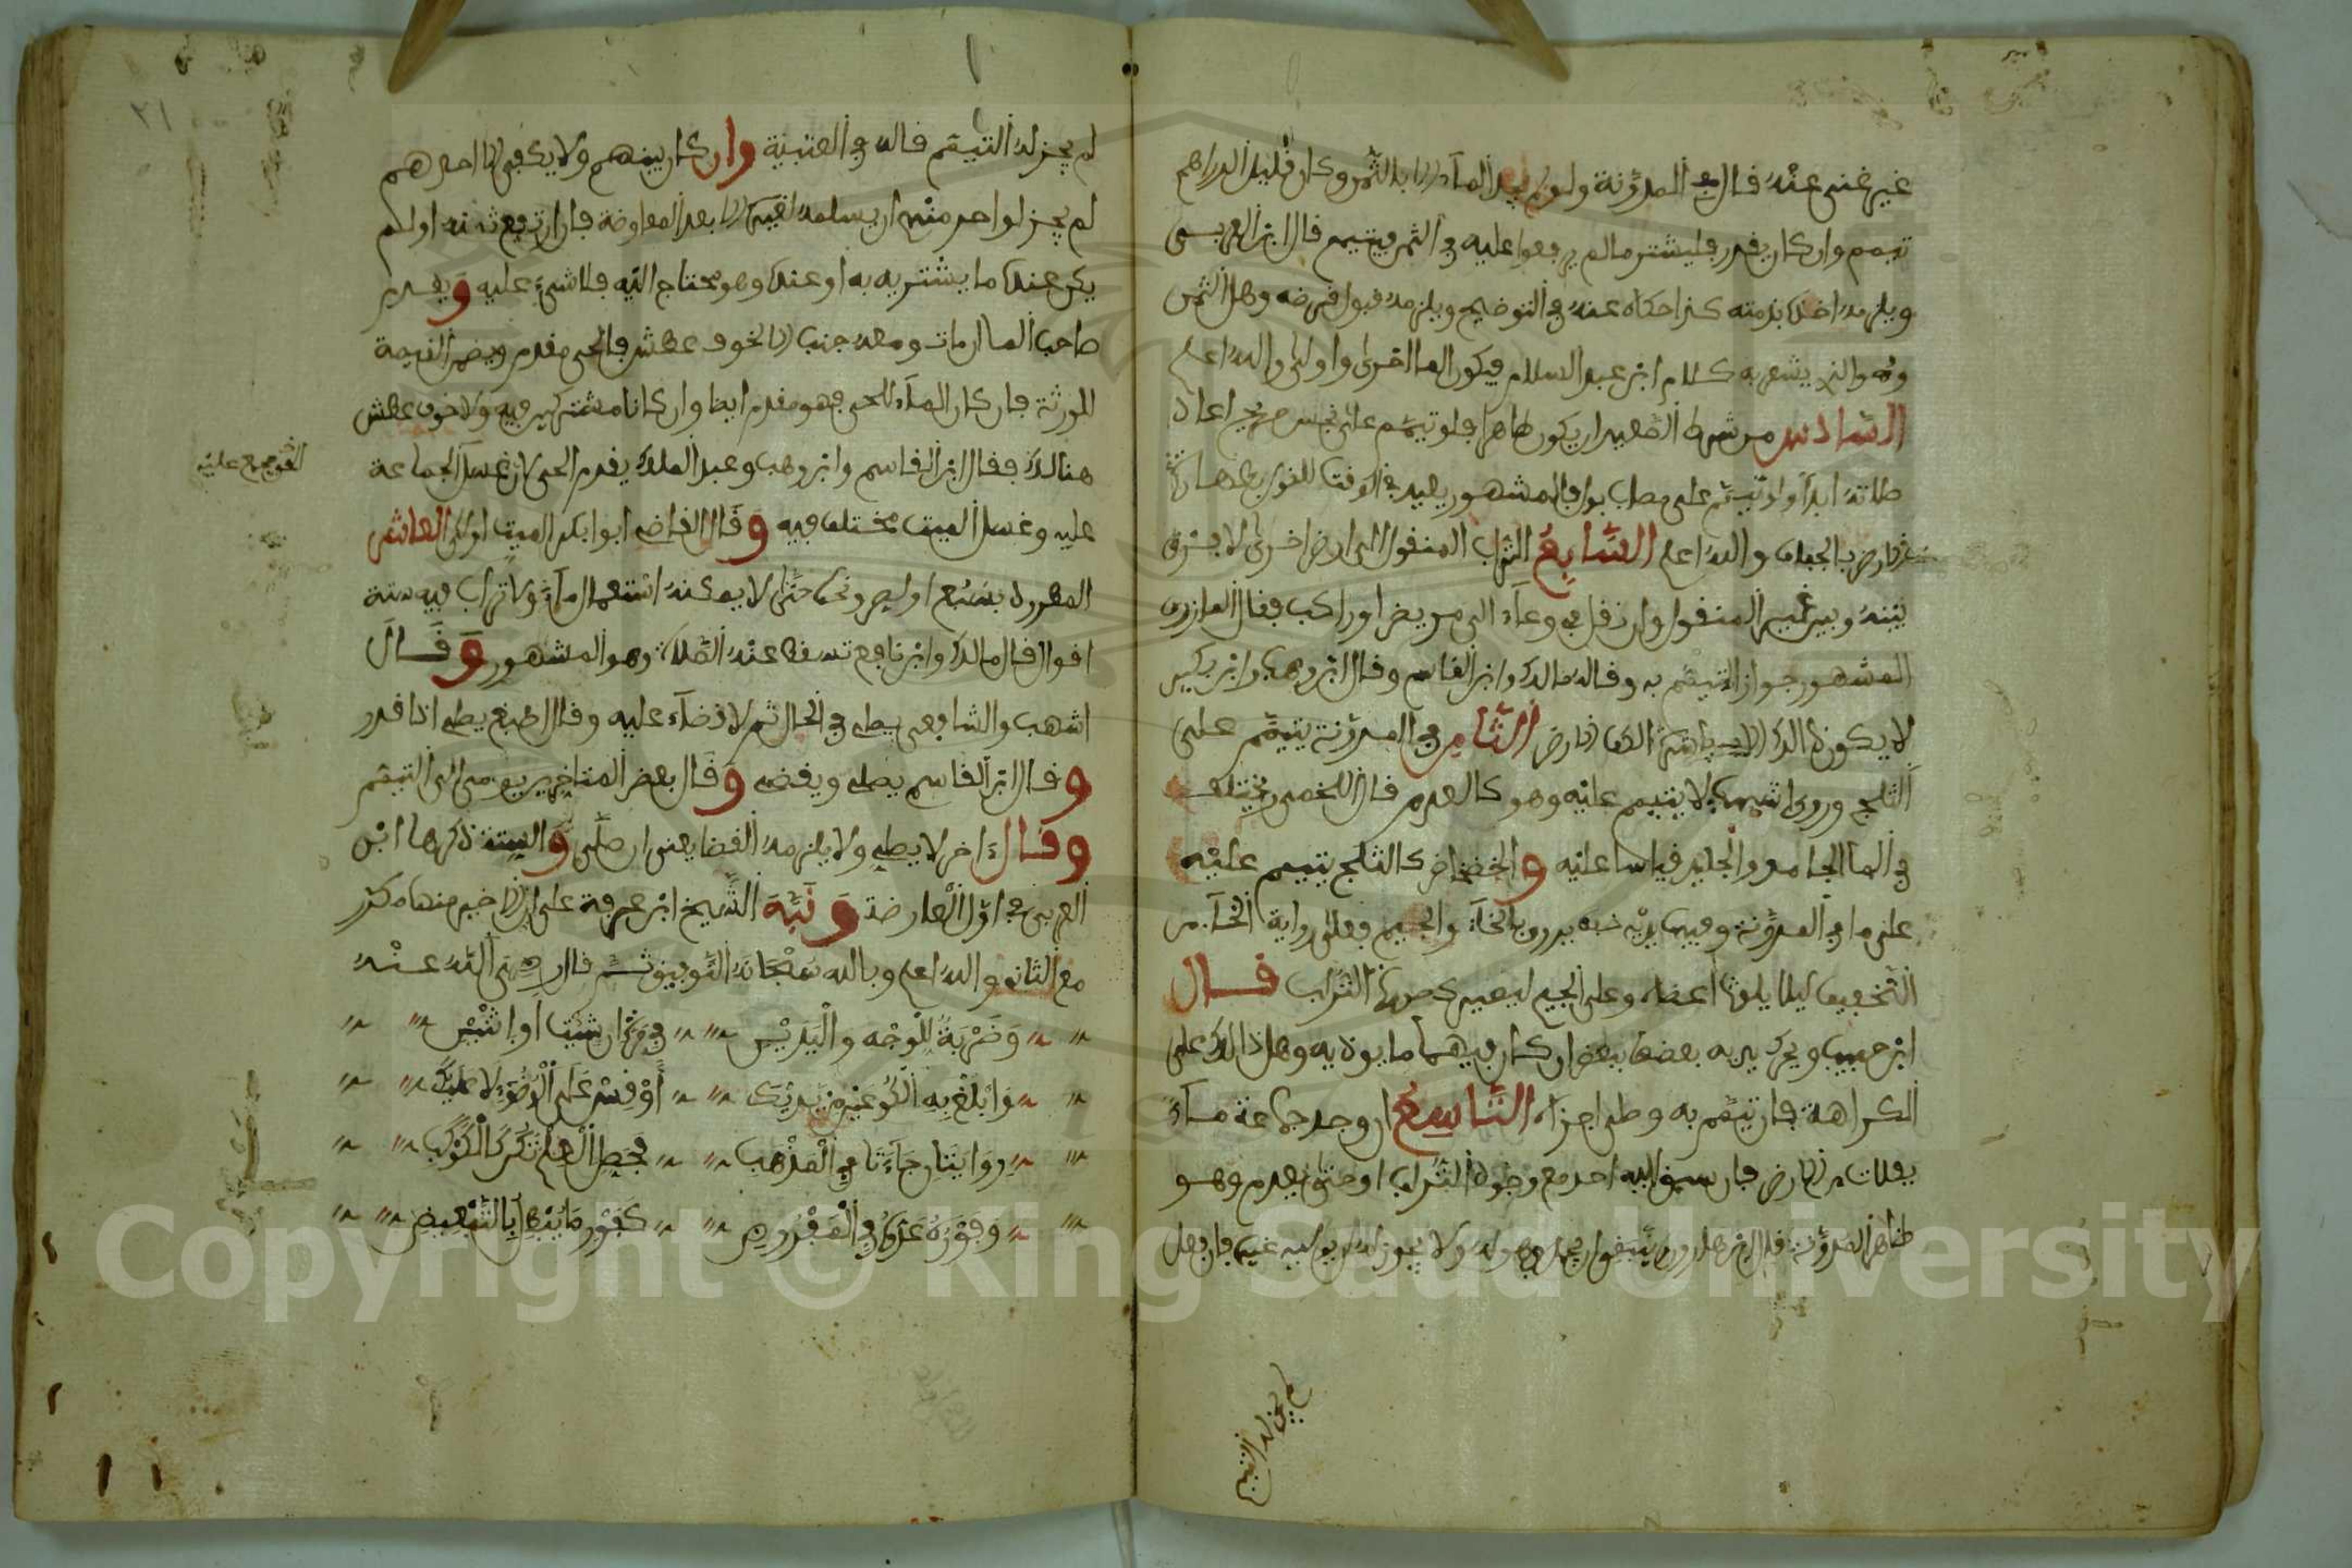 غير غنى عنه قال في المدونة ولو لم يجد المآء الا بالثمن وكان قليل الدراهم
تيمم وان كان يقدر فليشتر ما لم يرفعوا عليه في الثمن فيتيمم قال ابن العربي
ويلزمه اخذه بذمته كذا حكاه عنه في التوضيح ويلزمه قبول قرضه وهل الثمن
وهو الذي يشعر به كلام ابن عبد السلام فيكون الما احرى واولى والله اعلم
السادس من شرط الصعيد ان يكون طاهرا فلو تيمم على نجس صريح اعاد
صلاته ابدا ولو تيمم على مصاب بول فالمشهور يعيد في الوقت للقول بطهارة
الارض بالجفاف والله اعلم السابع التراب المنقول الى ارض اخرى لا فرق
بينه وبين غير المنقول وان نقل في وعآء الى مريض او راكب فقال المازري
المشهور جواز التيمم به وقاله مالك وابن القاسم وقال ابن وهب وابن بكير
لا يكون ذالك الا بما شاكل الارض الثامن في المدونة يتيمم على
الثلج وروى اشهب لا يتيمم عليه وهو كالعدم قال اللخمي ويختلف
في الما الجامد والجليد قياسا عليه والخضخاض كالثلج يتيمم عليه
على ما في المدونة وفيها يديه يروى بالخآء والجيم فعلى رواية الخآء من
التخفيف ليلا يلوث اعضاه وعلى الجيم ليصير كصورة التراب قال
ابن حبيب ويحرك يديه بعضها ببعض ان كان فيهما ما يوذيه وهل ذالك على
الكراهة فان تيمم به وصلى اجزاه التاسع ان وجد جماعة مآء
بفلات من الارض فان سبق اليه احد مع وجود التراب او حتى يعدم وهو
ظاهر المدونة قال ابن هارون ولا يجوز له ان يوليه غيره فان فعل
لم يجز له التيمم
لم يجز له التيمم قاله في العتبية وان كان بينهم ولا يكفي الا احدهم
لم يجز لواحد منهم ان يسلمه لغيره الا بعد المعاوضة فان ارتفع ثمنه او لم
يكن عنده ما يشتريه به او عنده وهو محتاج اليه فلا شيء عليه ويقدم
صاحب الما ان مات ومعه جنب الا لخوف عطش فالحي مقدم ويضمن القيمة
للورثة فان كان المآء للحي فهو مقدم ايضا وان كانا مشتركين فيه ولا خوف عطش
هنالك فقال ابن القاسم وابن وهب وعبد الملك يقدم الحي لان غسل الجماعة
عليه وغسل الميت مختلف فيه وقال القاضي ابوا بكر الميت اولى العاشر
المطرود بسبع او لص ونحوه حتى لا يمكنه استعمال مآء ولا تراب فيه ستة
اقوال قال مالك وابن نافع تسقط عنه الصلاة وهو المشهور وقال
اشهب والشافعي يصلي في الحال ثم لا قضآء عليه وقال اصبغ يصلي اذا قدر
وقال ابن القاسم يصلي ويقضي وقال بعض المتاخرين يومي الى التيمم
وقال ءاخر لا يصلي ولا يلزمه القضا يعني ان صلى والستة ذكرها ابن
العربي في اول العارضة ونبه الشيخ ابن عرفة على ان الاخير منها مكرر
مع الثاني والله اعلم وبالله سبحانه التوفيق ثم قال رضي الله عنه
وَضَرْبَةٌ لِلْوَجْه والْيَدَيْن في مرة ان شئت او اثنين
وَابْلُغْ به الْكُوعَيْن من يديك أوْ قِسْ على الْوُضُوء لا عليك
روايتان جَآءَتَا في الْمَذْهب فحصل العلم تكن كالكوكب